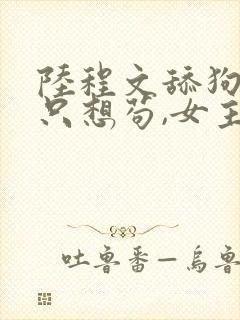 陸程文舔狗
只想苟,女主
吐魯番—烏魯